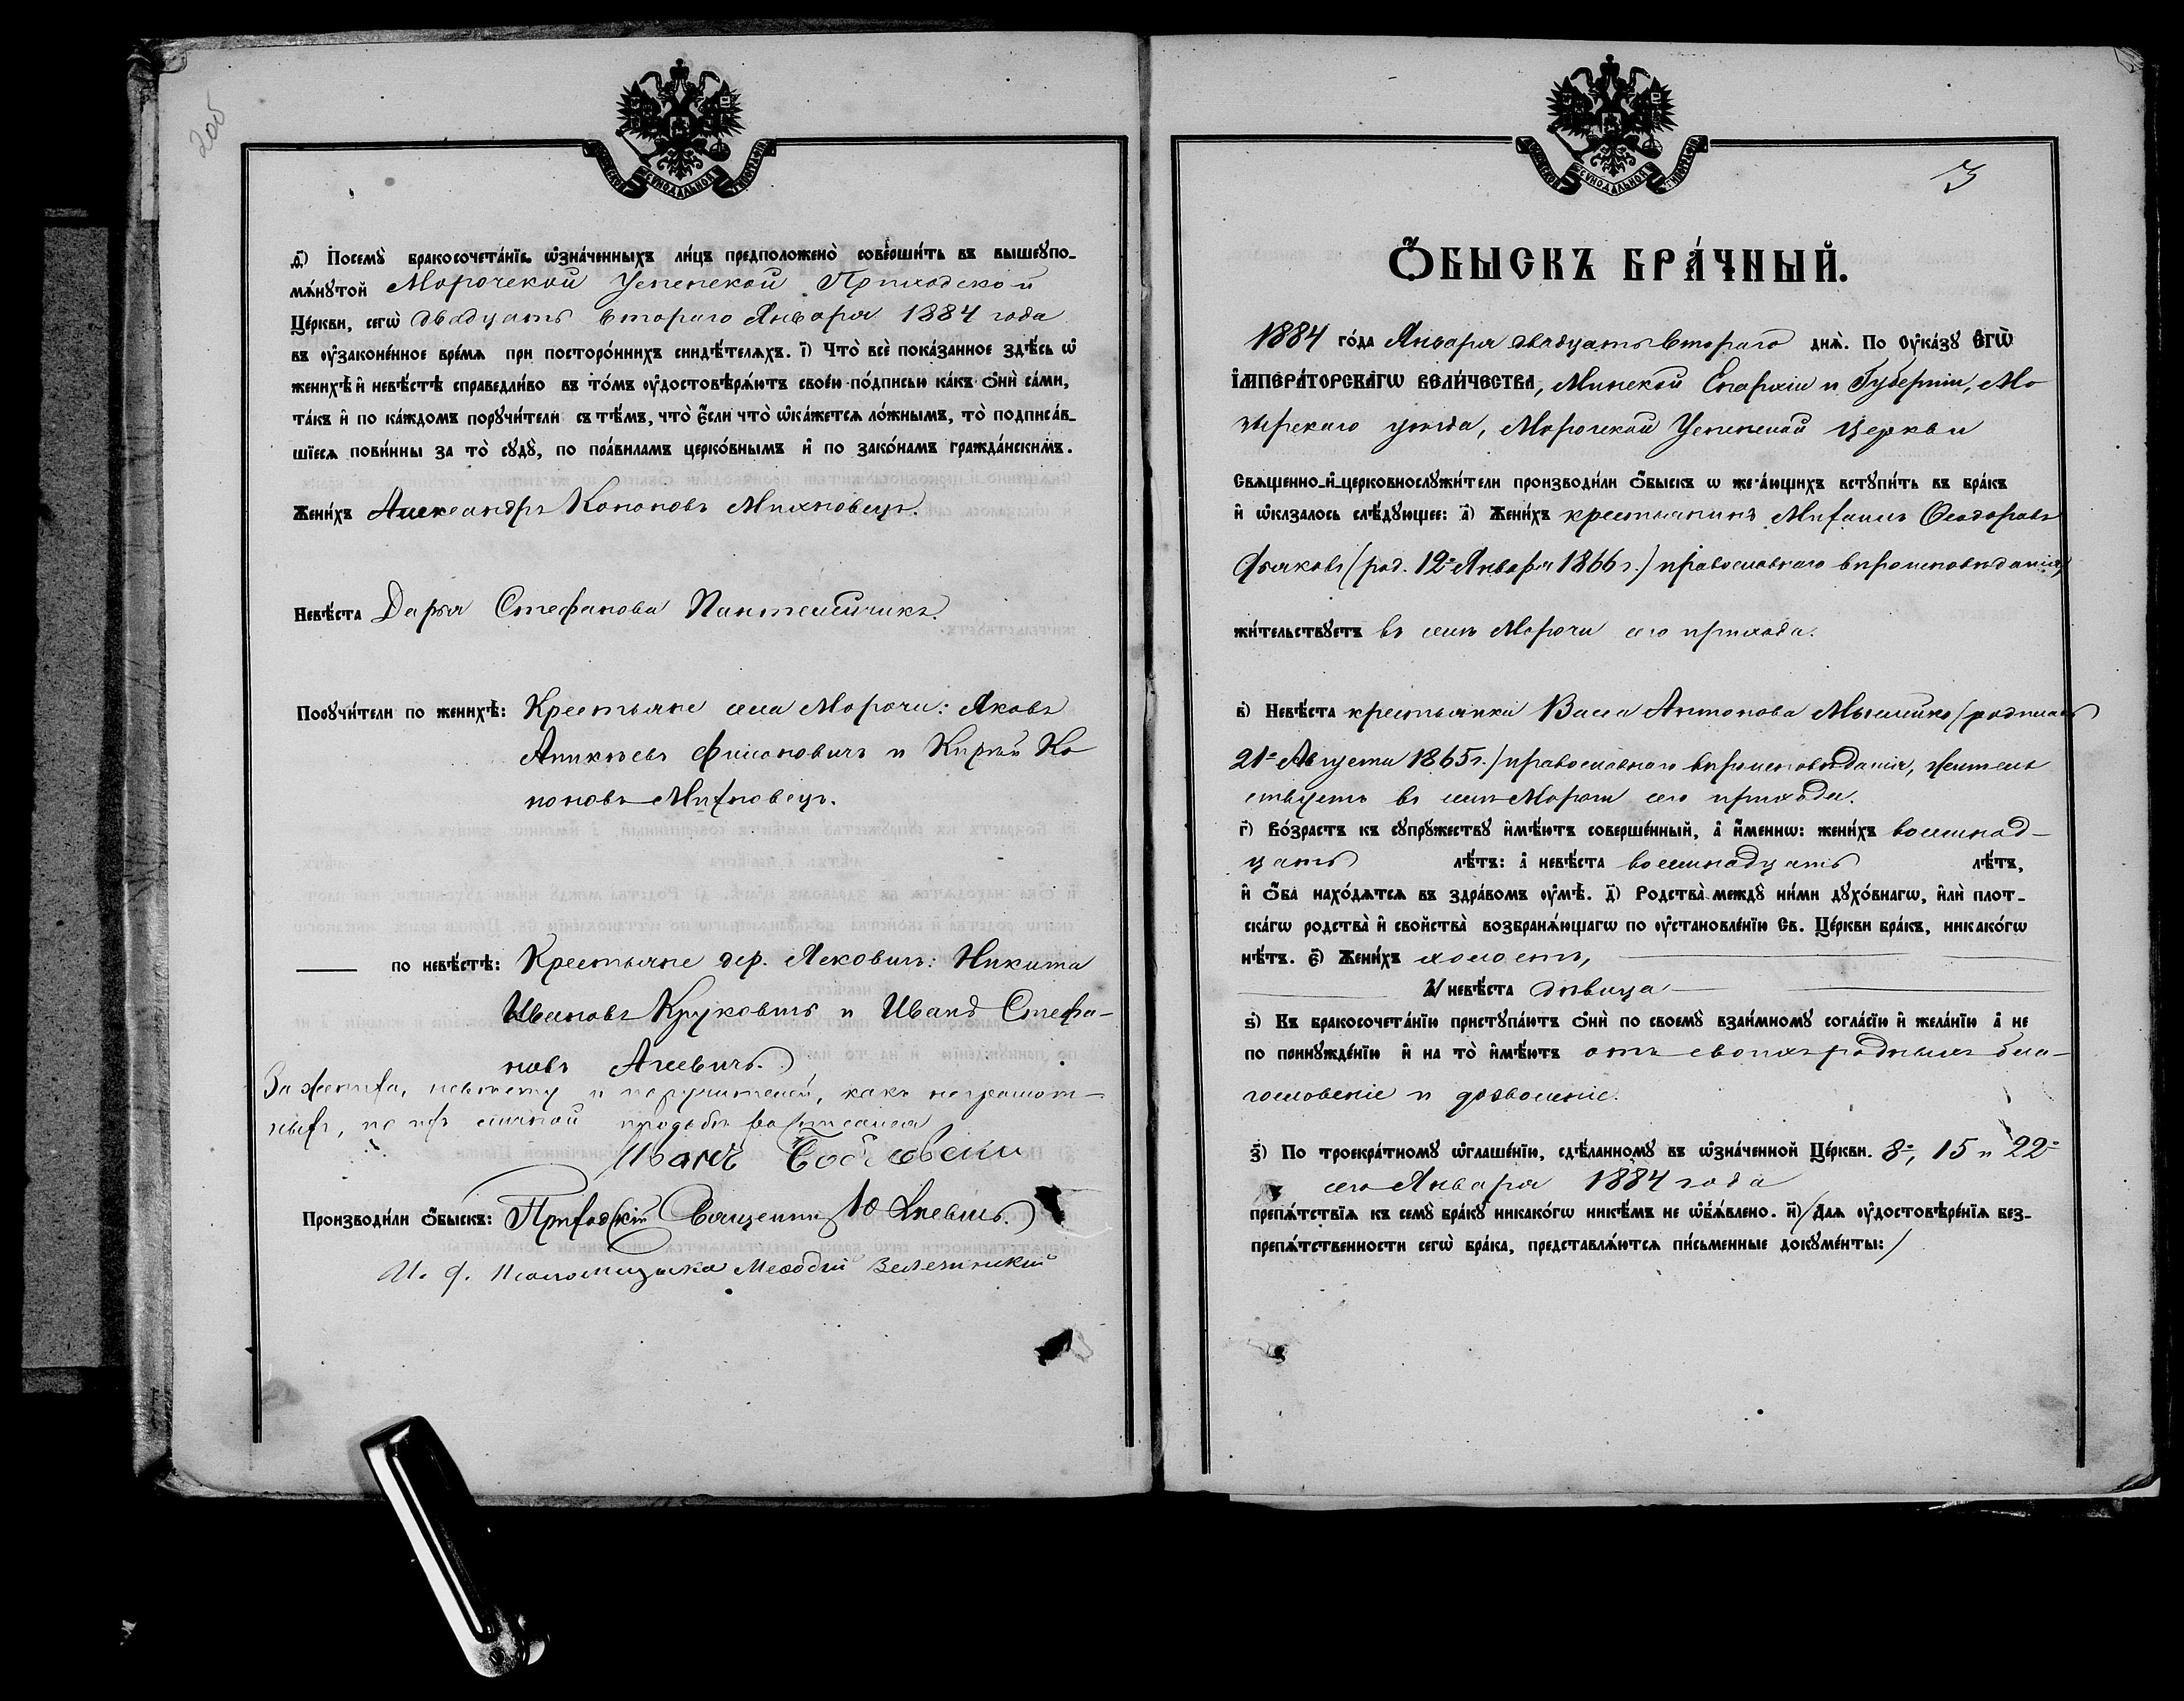 205
д҃) Посемꙋ̀ бракосочета́нїе ѡ҆зна́ченныхъ ли́цъ предположено̀ соверши́ть въ вышеꙋпо-
мѧ́нꙋтой Морочской Успенской Приходской
Це́ркви, сегѡ̀ двадцать втораго Января 1884 года
въ ᲂу҆законе́нное вре́мѧ при посторо́ннихъ свидѣ́телѧхъ. і҃) Что̀ всѐ пока́занное здѣ́сь ѡ҆
женихѣ̀ и҆ невѣ́стѣ справедли́во въ то́мъ ᲂу҆достовѣрѧ́ютъ свое́ю по́дписью ка́къ ѻ҆нѝ са́ми,
та́къ и҆ по ка́ждомъ порꙋчи́тели съ тѣ́мъ, что̀ є҆́сли что̀ ѡ҆ка́жетсѧ ло́жнымъ, то̀ подписа́в-
шїесѧ пови́нны за то̀ сꙋдꙋ̀, по пра́виламъ церко́внымъ и҆ по зако́намъ гражда́нскимъ.
Жени́хъ Александръ Кононовъ Михновецъ.
Невѣ́ста Дарья Стефанова Пантелейчикъ.
Порꙋчи́тели по женихѣ̀: Крестьяне села Морочи: Яковъ
Аникіевъ Филоновичъ и Кирилъ Ко
ноновъ Михновецъ.
по невѣ́стѣ: Крестьяне дер. Ясковичъ: Никита
Ивановъ Круковичъ и Иванъ Стефа-
новъ Агіевичъ.
За жениха, невѣсту и поручителей, какъ неграмот-
ныхъ, по ихъ личной просьбѣ росписался
Иванъ
Производи́ли ѻ҆́быскъ: Приходскій Священникъ Ю
И. д. Псаломщика Меѳодій
3
Ѻ҆́БЫСКЪ БРА́ЧНЫЙ.
1884 го́да Января двадцать втораго днѧ̀. По Оу҆ка́зꙋ Є҆ГѠ̀
І҆МПЕРА́ТОРСКАГѠ ВЕЛИ́ЧЕСТВА, Минской Епархіи и Губерніи, Мо
зырскаго уѣзда, Морочской Успенской Церкви
Свѧщенно-и҆-церковнослꙋжи́тели производи́ли ѻ҆́быскъ ѡ҆ жела́ющихъ встꙋпи́ть въ бра́къ
и҆ ѡ҆казалось слѣ́дꙋющее: а҃) Жени́хъ крестьянинъ Михаилъ Ѳеодоровъ
Дьяковъ (род. 12го Января 1866 г.) православнаго вѣроисповѣданія,
жи́тельствꙋетъ въ селѣ Морочи сего прихода.
в҃) Невѣ́ста крестьянка Васса Антонова Мышейко (родилась
21го Августа 1865 г.) православнаго вѣроисповѣданія, житель
ствуетъ въ селѣ Морочи сего прихода.
г҃) Во́зрастъ къ сꙋпрꙋ́жествꙋ и҆мѣ́ютъ соверше́нный, а҆ и҆́менно: жени́хъ восемнад-
цать лѣ́тъ: а҆ невѣ́ста восемнадцать лѣ́тъ,
и҆ ѻ҆́ба нахо́дѧтсѧ въ здра́вомъ ᲂу҆мѣ̀. д҃) Родства̀ междꙋ̀ ни́ми дꙋхо́внагѡ, и҆лѝ плот-
скагѡ родства̀ и҆ свойства̀ возбранѧ́ющагѡ по ᲂу҆становле́нїю Св. Це́ркви бра́къ, никако́гѡ
нѣ́тъ. є҃) Жени́хъ холостъ,
И невѣ́ста дѣвица
ѕ҃) Къ бракосочета́нїю пристꙋпа́ютъ ѻ҆нѝ по своемꙋ̀ взаи́мномꙋ согла́сїю и҆ жела́нїю а҆ не
по принꙋжде́нїю и҆ на то̀ и҆мѣ́ютъ отъ своихъ родныхъ бла-
гословеніе и дозволеніе.
з҃) По троекра́тномꙋ ѡ҆глаше́нїю, сдѣ́ланномꙋ въ ѡ҆зна́ченной Це́ркви. 8го, 15 и 22го
сего Января 1884 года
препѧ́тствїѧ къ семꙋ̀ бра́кꙋ никако́гѡ никѣ́мъ не ѡ҆б̾ѧ́влено. и҃) (Длѧ ᲂу҆достовѣре́нїѧ без-
препѧ́тственности сегѡ̀ бра́ка, представлѧ́ютсѧ пи́сьменные докꙋме́нты:)